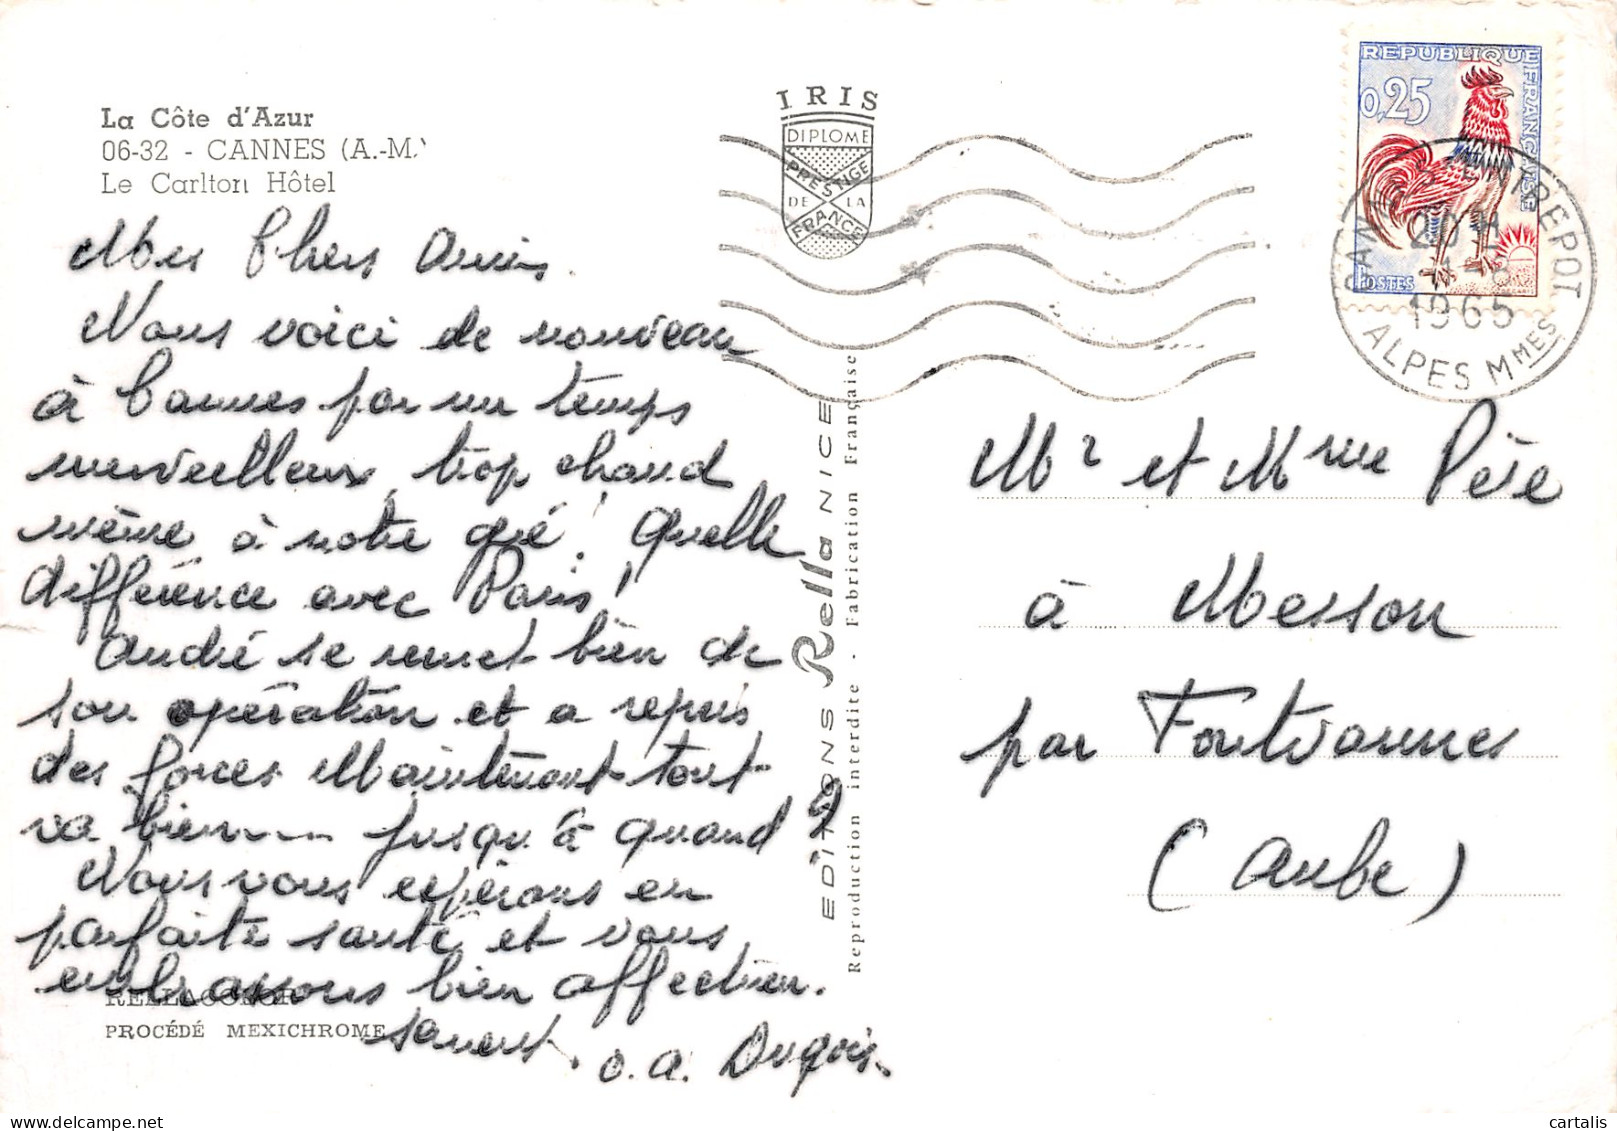 La Côte d'Azur
06-32 - CANNES (A.-M.)
Le Carlton Hôtel
Mes Chers Amis.
Nous voici de nouveau
à Cannes par un temps
merveilleux, trop chaud
même à notre gré ! Quelle
différence avec Paris !
André se remet bien de
son opération et a repris
des forces Maintenant tout
va bien---- jusqu'à quand ?
Nous vous espérons en
parfaite santé et vous
embrassons bien affectueu.
sement.
RELLACOLOR
PROCÉDÉ MEXICHROME
IRIS
DIPLOME
PRESTIGE
DE LA
FRANCE
EDITIONS Rella NICE
Reproduction interdite - Fabrication Française
REPUBLIQUE FRANÇAISE
0,25
POSTES
CANNES ENTREPOT
1965
ALPES MMES
Mr et Mme Père
à Messon
par Fontvannes
(Aube)
cartalis
www.delcampe.net